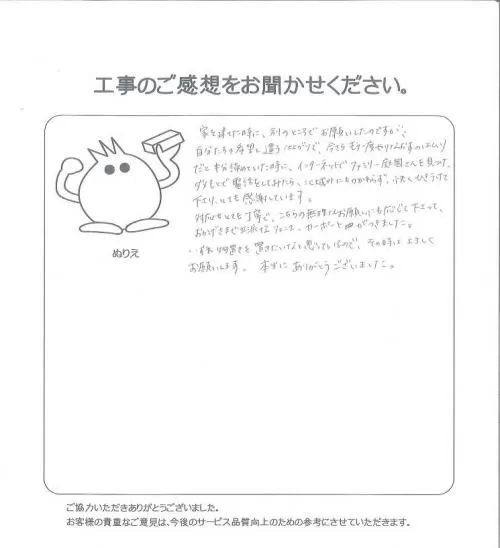 工事のご感想をお聞かせください。
家を建てた時に、別のところでお願いしたのですが、
自分たちの希望と違う仕上がりで、今さらもう一度やりなおすのはムリ
だと半分諦めていた時に、インターネットでファミリー庭園さんを見つけ、
ダメもとで電話をしてみたら、にもかかわらず、快く引き受けて
下さり、とても感謝しています。
対応もとても丁寧で、こちらの無理なお願いにも応じて下さって、
おかげさまで立派なフェンス、カーポートがつきました。
物置きを置きたいなと思っているので、その時はよろしく
お願いします。 本当にありがとうございました。
ぬりえ
ご協力いただきありがとうございました。
お客様の貴重なご意見は、今後のサービス品質向上のための参考にさせていただきます。